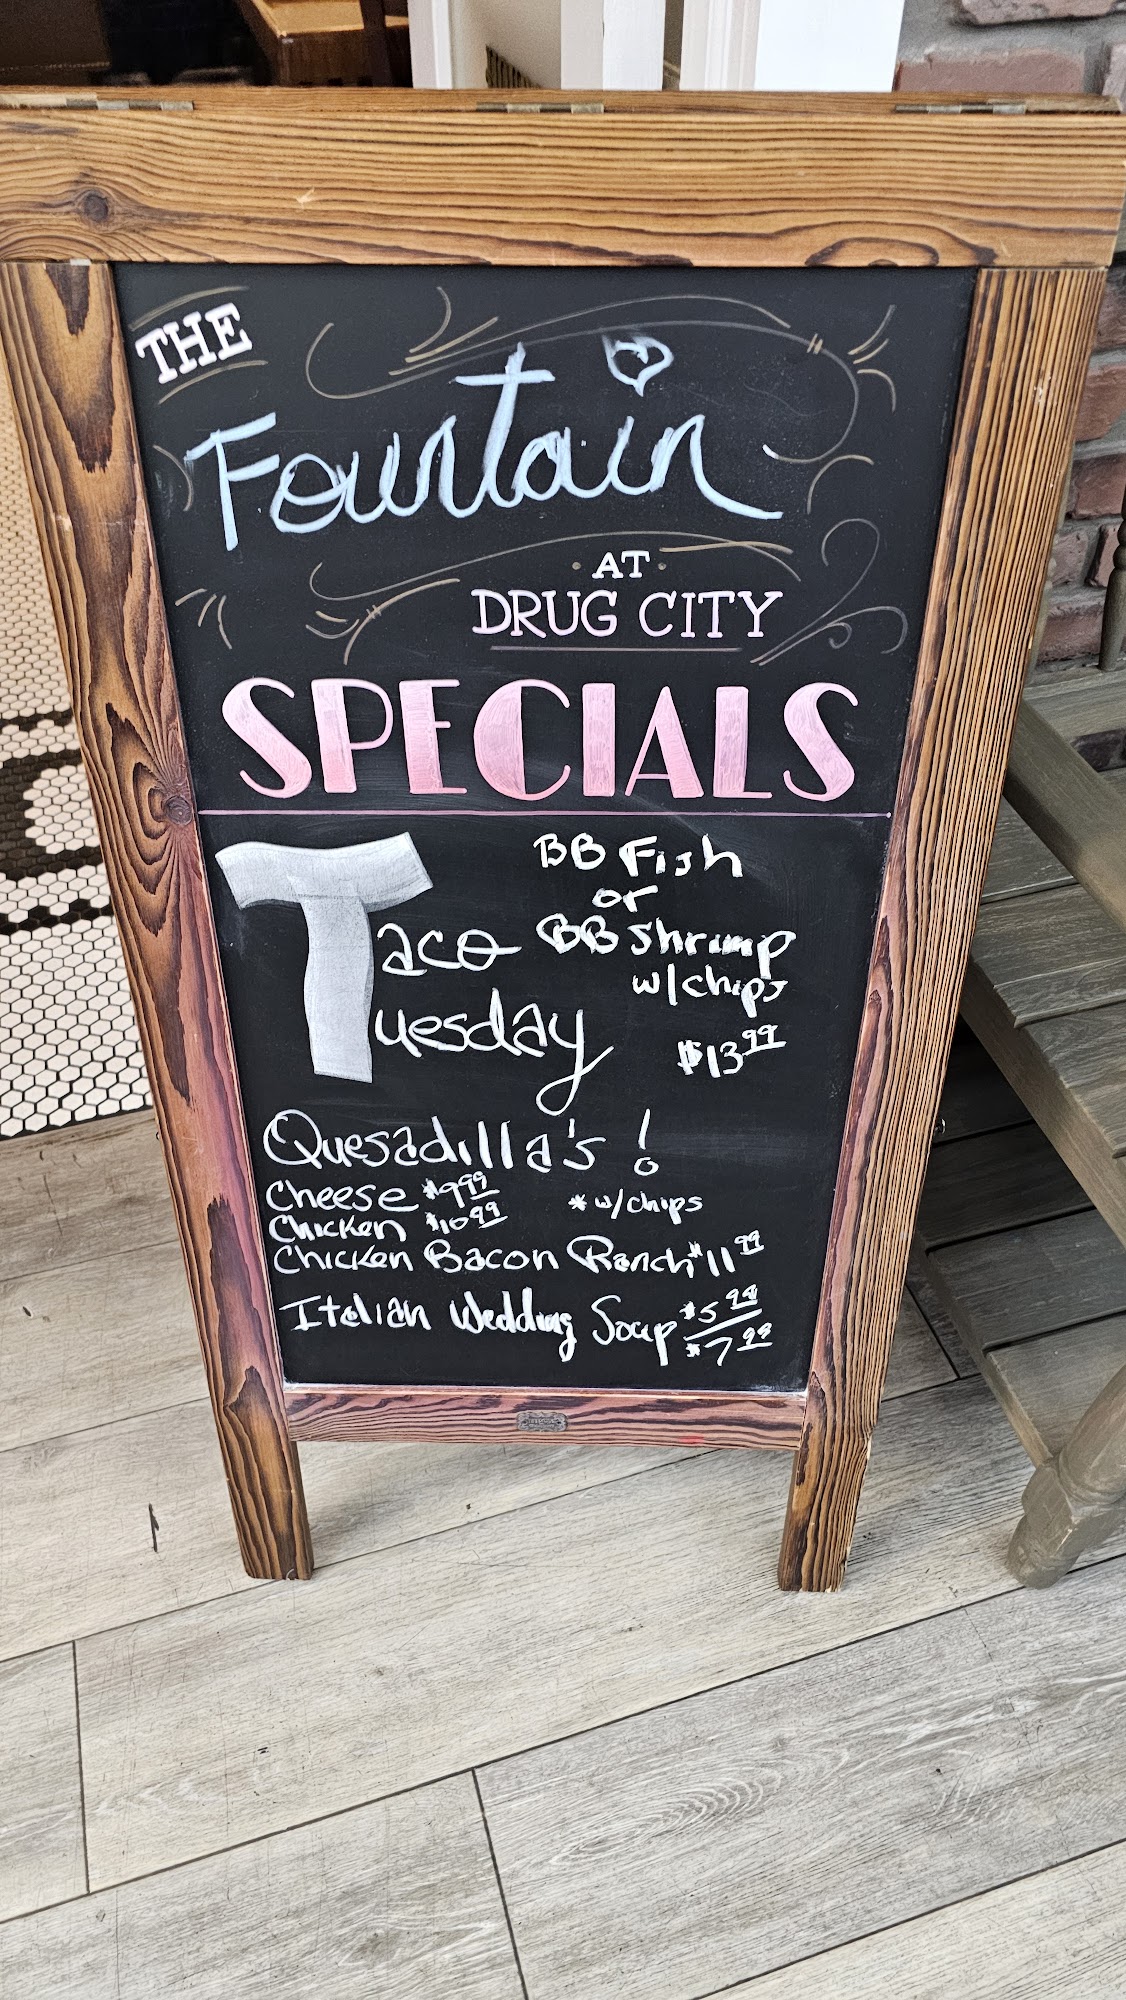 THE
Fountain
· AT ·
DRUG CITY
SPECIALS
Taco
Tuesday
BB Fish
or
BB Shrimp
w/chips
$13.99
Quesadilla's !
Cheese $9.99
* w/chips
Chicken $10.99
Chicken Bacon Ranch $11.99
Italian Wedding Soup $5.99
$7.99